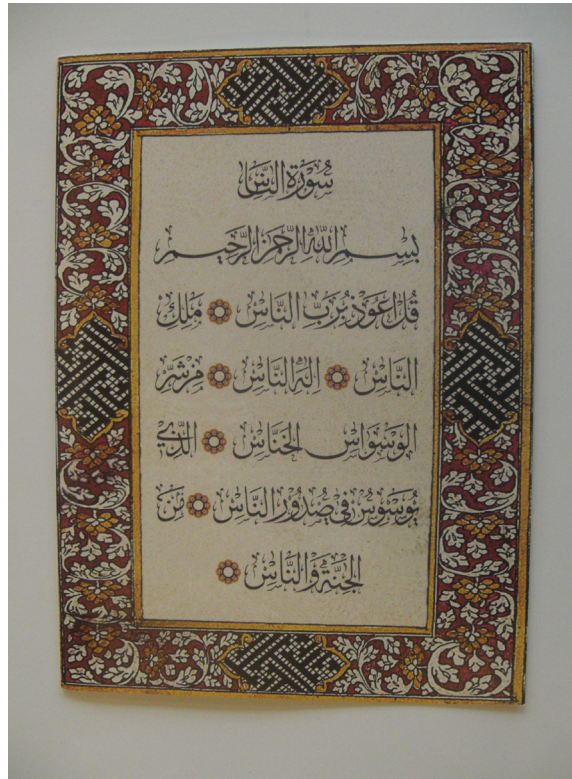 سُورَةُ النَّاسِ
بِسْمِ اللّٰهِ الرَّحْمٰنِ الرَّحِيمِ
قُلْ اَعُوذُ بِرَبِّ النَّاسِ مَلِكِ
النَّاسِ اِلٰهِ النَّاسِ مِنْ شَرِّ
الْوَسْوَاسِ الْخَنَّاسِ الَّذِي
يُوَسْوِسُ فِي صُدُورِ النَّاسِ مِنَ
الْجِنَّةِ وَالنَّاسِ